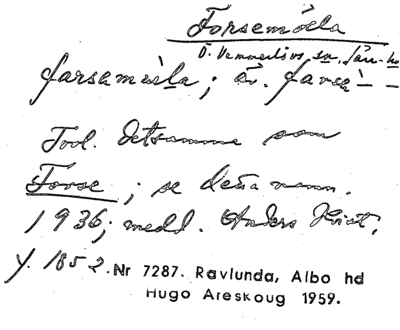 Forsemölla
Ö. Vemmerlövs sn, Järr. hd
farsamùəla; äv. farsə̀ - -
Trol. detsamma som
Forse; se detta namn.
1936; medd. Anders Kvist,
f. 1852. Nr 7287. Ravlunda, Albo hd
Hugo Areskoug 1959.